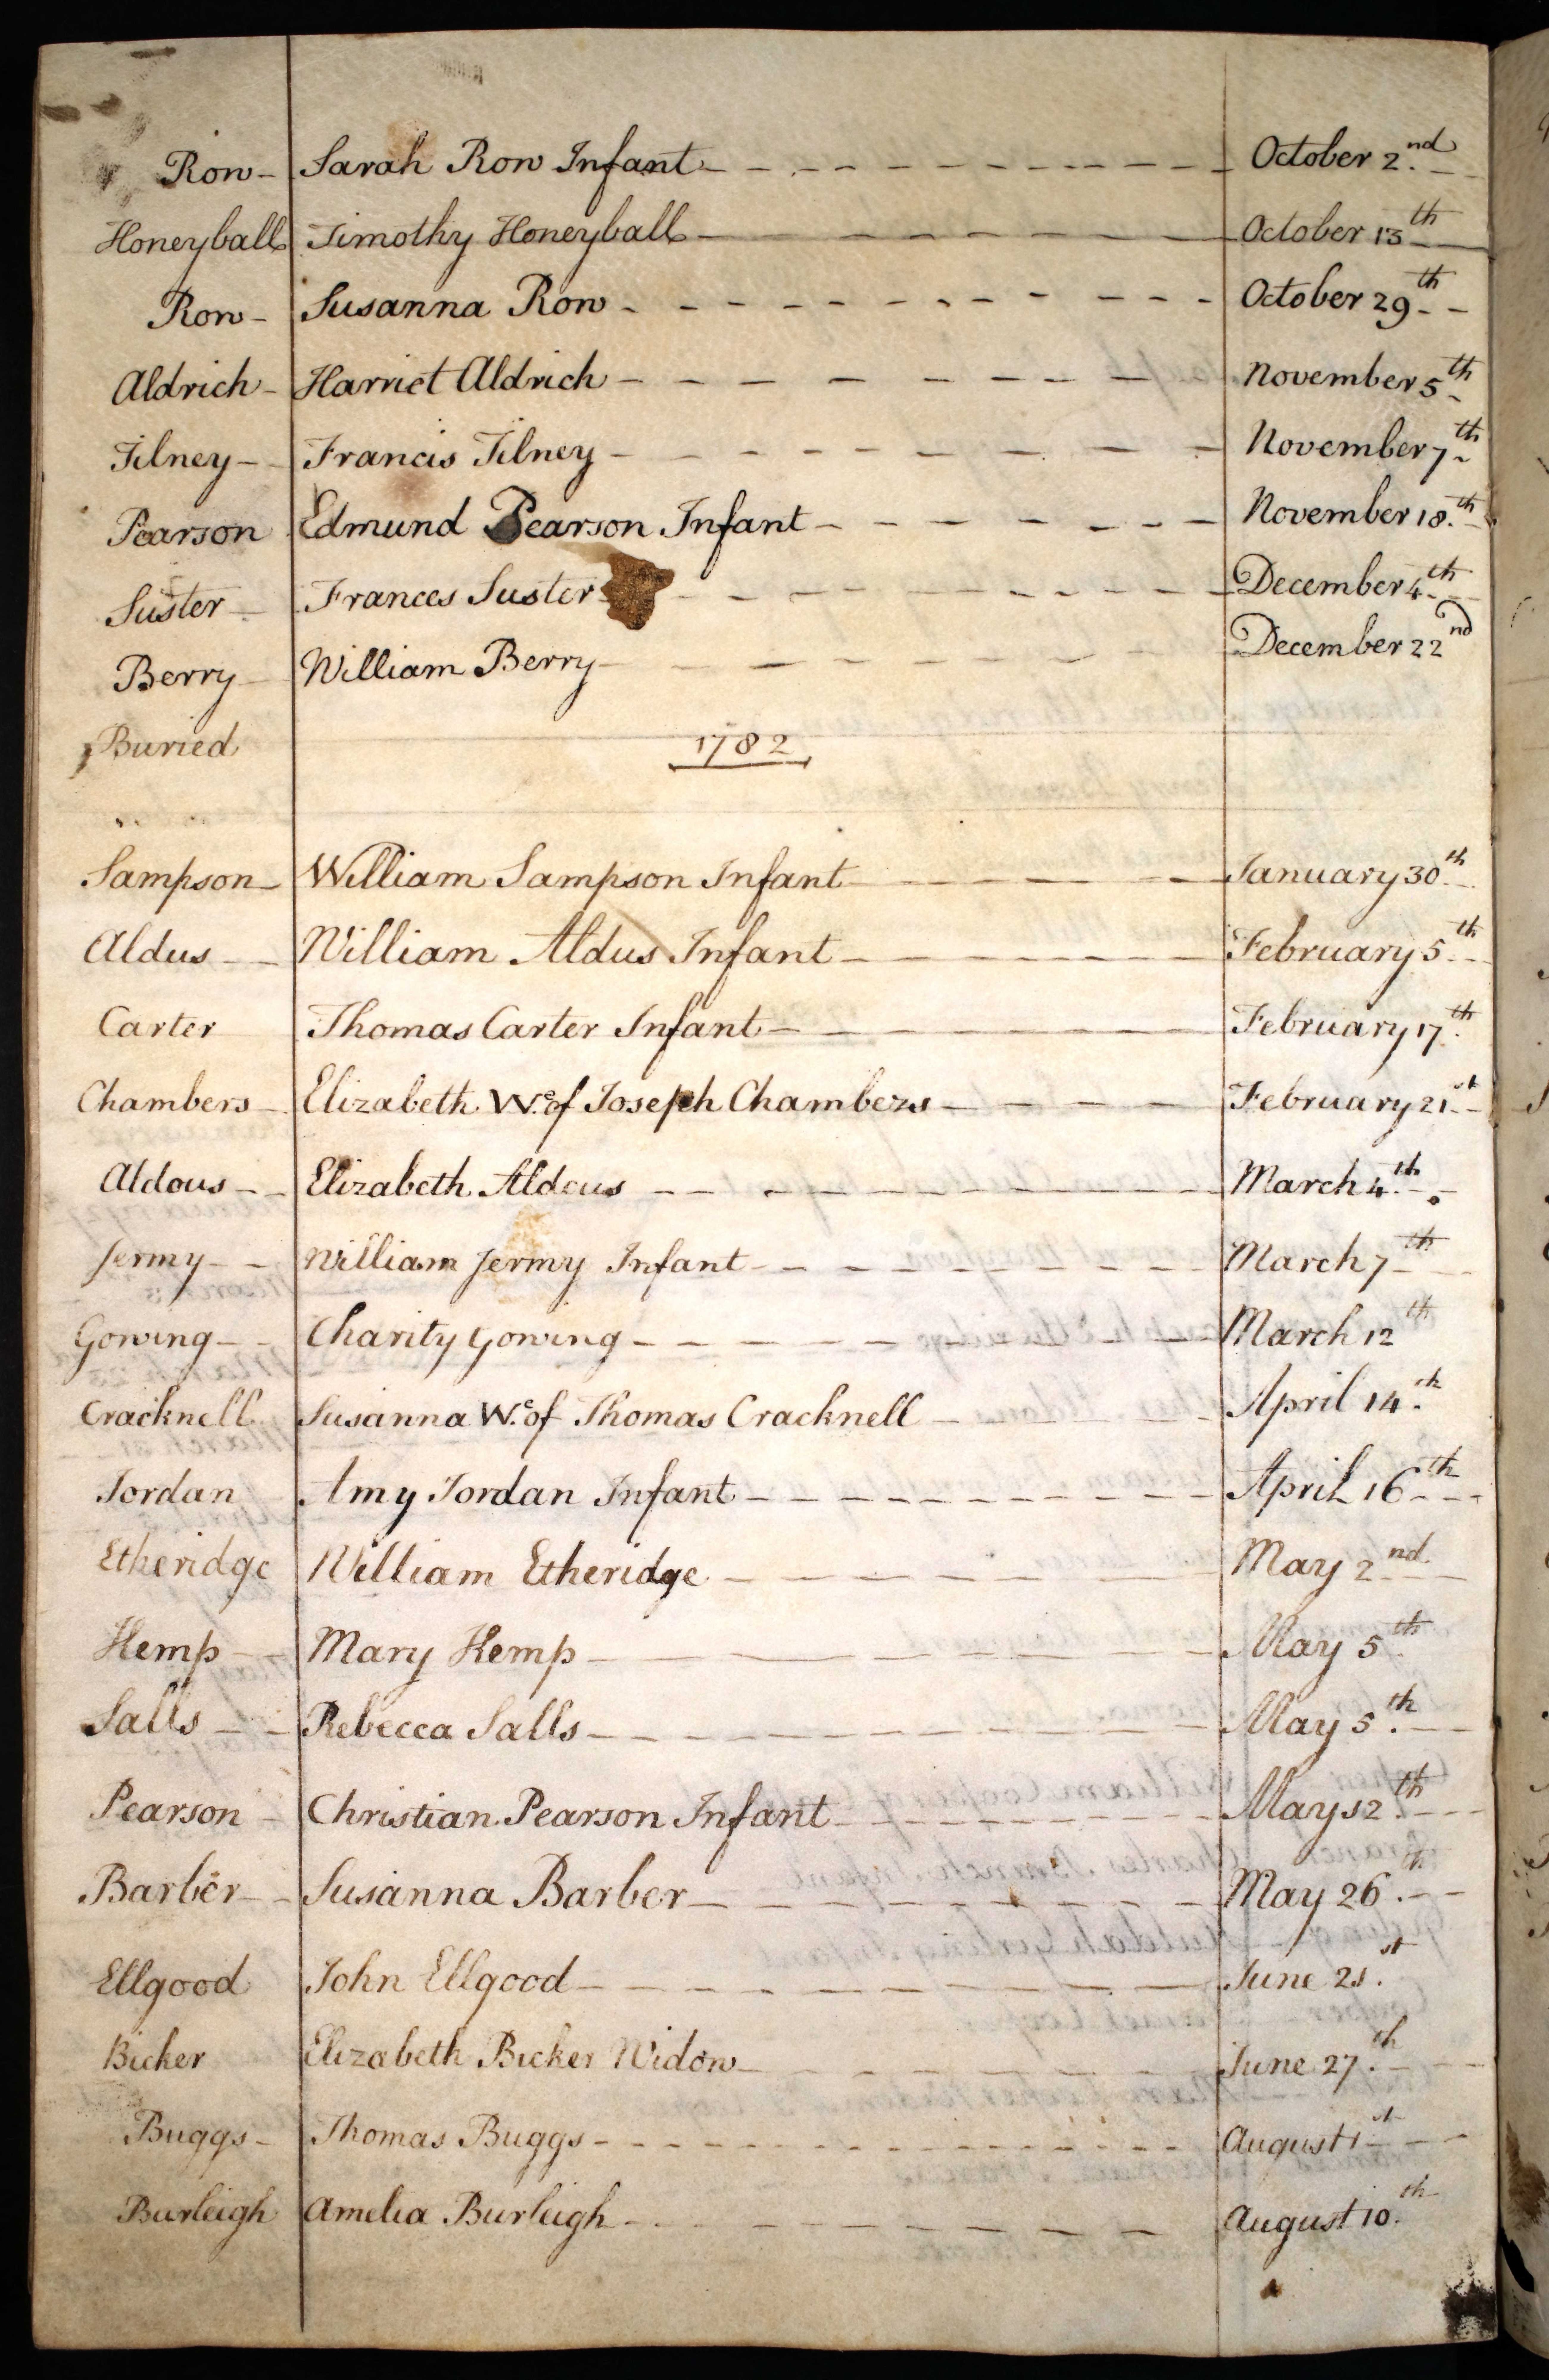 Row - Sarah Row Infant - October 2.nd
Honeyball Timothy Honeyball - October 13th
Row - Susanna Row - October 29th
Aldrich - Harriet Aldrich - November 5th
Tilney - Francis Tilney - November 7th
Pearson Edmund Pearson Infant - November 18.th
Suster - Frances Suster - December 4th
Berry - William Berry - December 22nd
Buried 1782
Sampson - William Sampson Infant - January 30th
Aldus - William Aldus Infant - February 5th
Carter Thomas Carter Infant - February 17th
Chambers - Elizabeth W.e of Joseph Chambers - February 21st
Aldous - Elizabeth Aldous - March 4th
Jermy - William Jermy Infant - March 7th
Gowing - Charity Gowing - March 12th
Cracknell Susanna W.e of Thomas Cracknell - April 14.th
Jordan Amy Jordan Infant - April 16th
Etheridge William Etheridge - May 2nd
Hemp - Mary Hemp - May 5th
Salls - Rebecca Salls - May 5.th
Pearson - Christian Pearson Infant - May 12.th
Barber - Susanna Barber - May 26.th
Ellgood John Ellgood - June 21.st
Bicker Elizabeth Bicker Widow - June 27.th
Buggs - Thomas Buggs - August 1st
Burleigh Amelia Burleigh - August 10.th